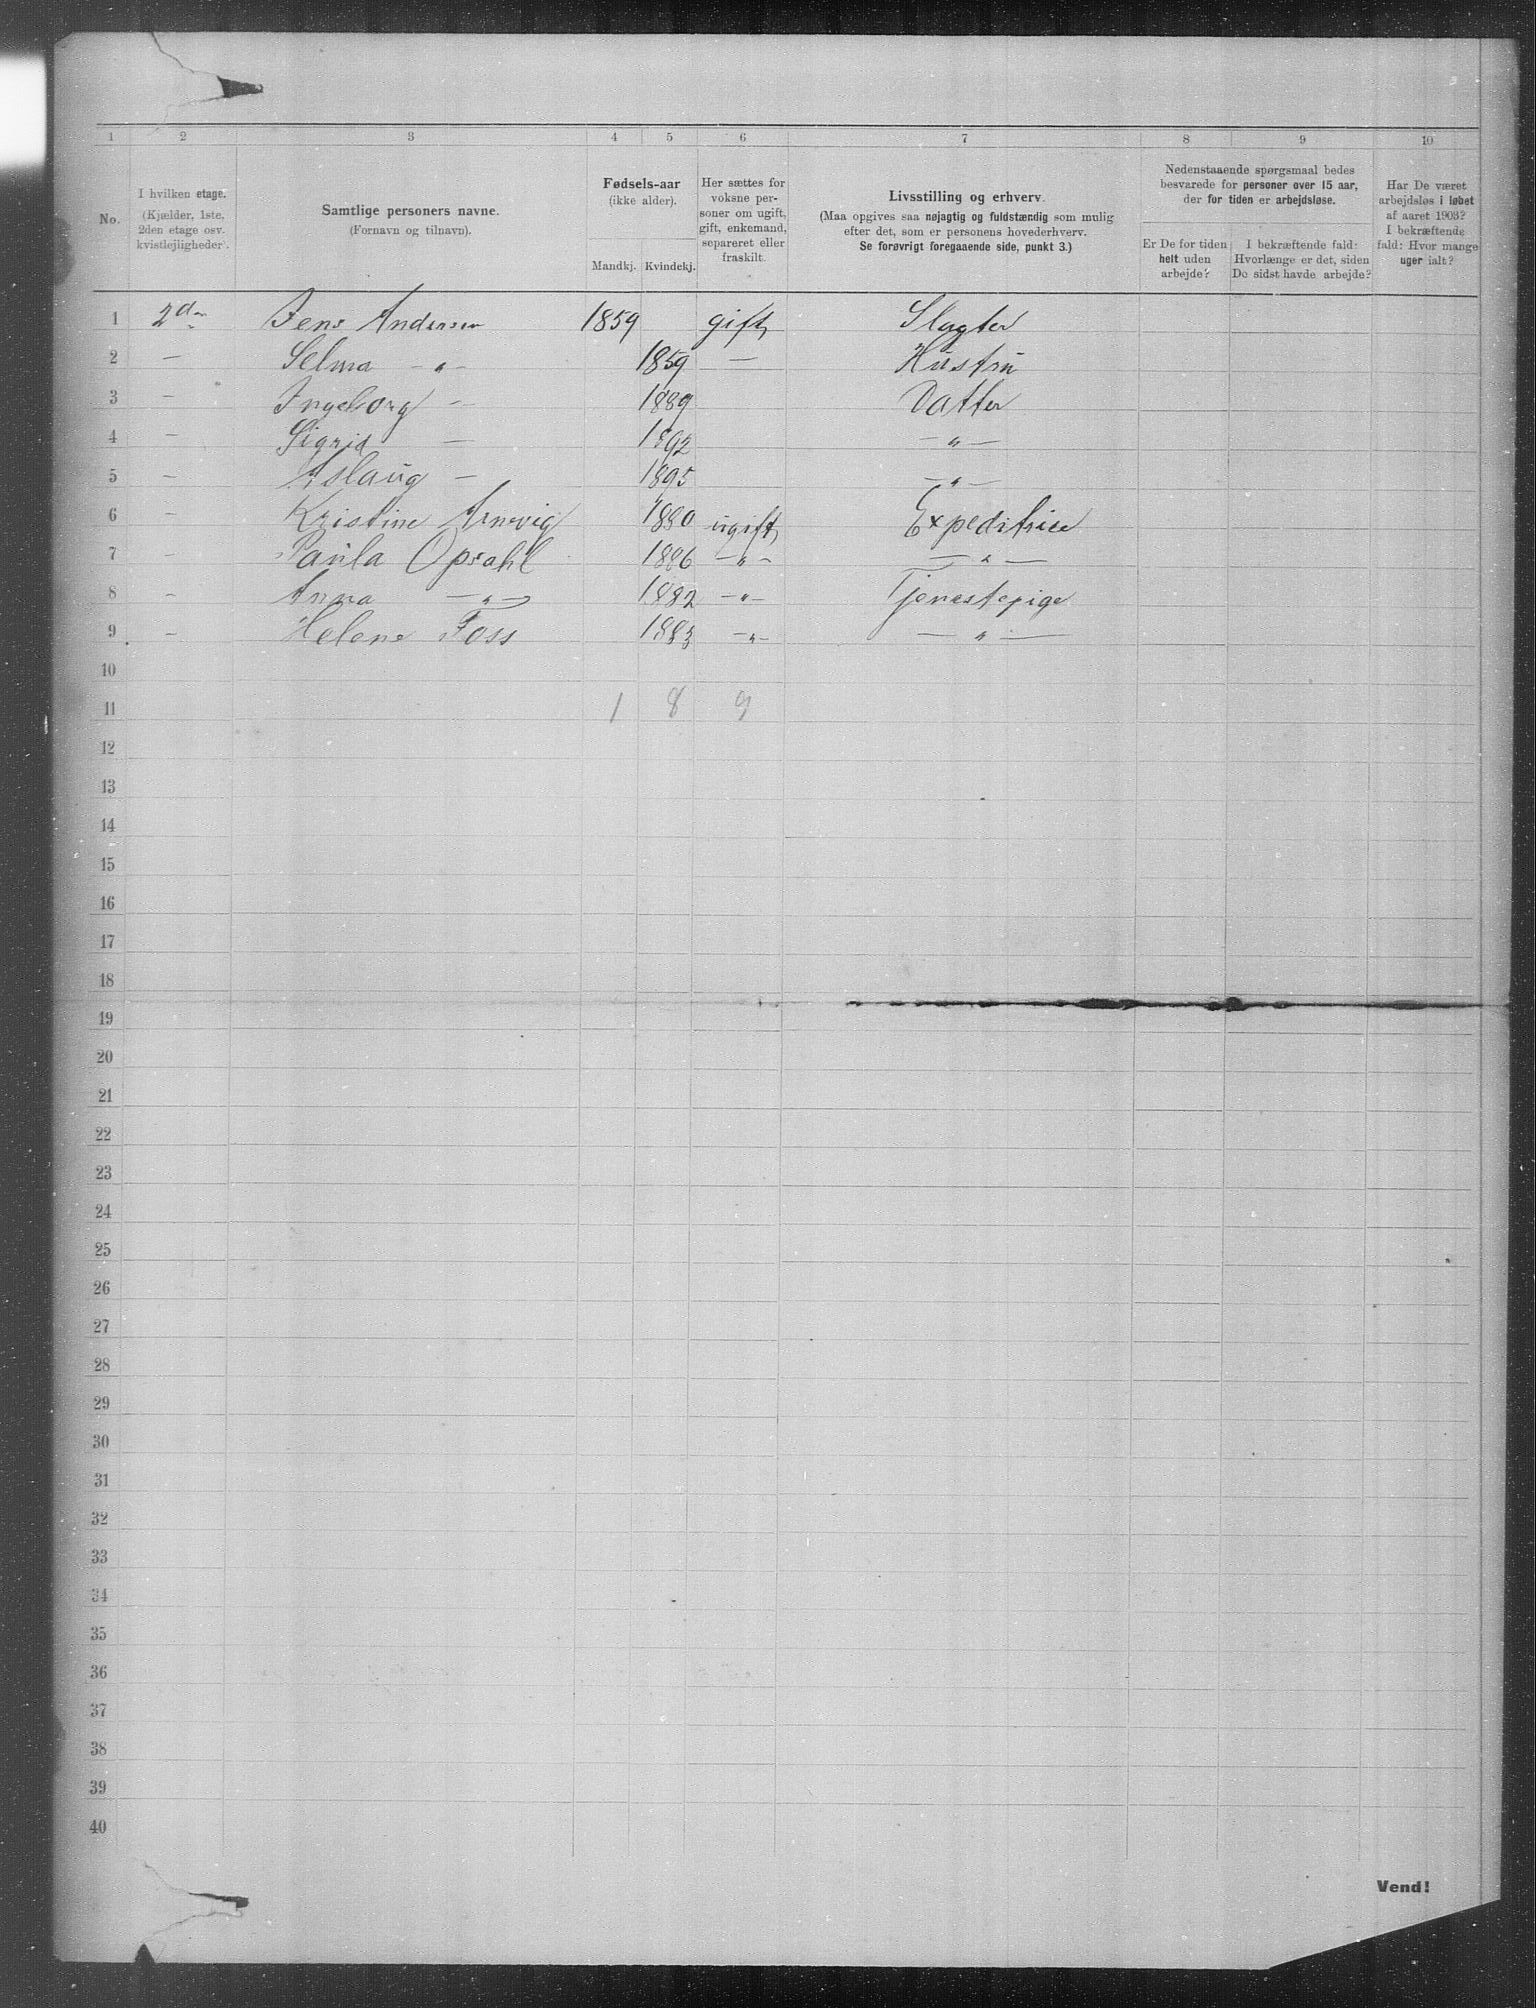 1 2 3 4 5 6 7 8 9 10
No.
I hvilken etage.
(Kjælder, 1ste,
2den etage osv.
kvistlejligheder).
Samtlige personers navne.
(Fornavn og tilnavn).
Fødsels-aar
(ikke alder).
Mandkj. Kvindekj.
Her sættes for
voksne per-
soner om ugift,
gift, enkemand,
separeret eller
fraskilt.
Livsstilling og erhverv.
(Maa opgives saa nøjagtig og fuldstændig som mulig
efter det, som er personens hovederhverv.
Se forøvrigt foregaaende side, punkt 3.)
Nedenstaaende spørgsmaal bedes
besvarede for personer over 15 aar,
der for tiden er arbejdsløse.
Er De for tiden
helt uden
arbejde?
I bekræftende fald:
Hvorlænge er det, siden
De sidst havde arbejde?
Har De været
arbejdsløs i løbet
af aaret 1903?
I bekræftende
fald: Hvor mange
uger ialt?
1 2den Jens Andersen 1859 gift Slagter
2 — Selma — " — 1859 — Hustru
3 — Ingeborg — 1889 Datter
4 — Sigrid — 1892 — " —
5 — Aslaug — 1895 — " —
6 — Kristine Arnevig 1880 ugift Expeditrice
7 — Paula Opsahl 1886 — " — — " —
8 — Anna — " — 1882 — " — Tjenestepige
9 — Helene Foss 1883 — " — — " —
10
11 1 8 9
12
13
14
15
16
17
18
19
20
21
22
23
24
25
26
27
28
29
30
31
32
33
34
35
36
37
38
39
40
Vend!